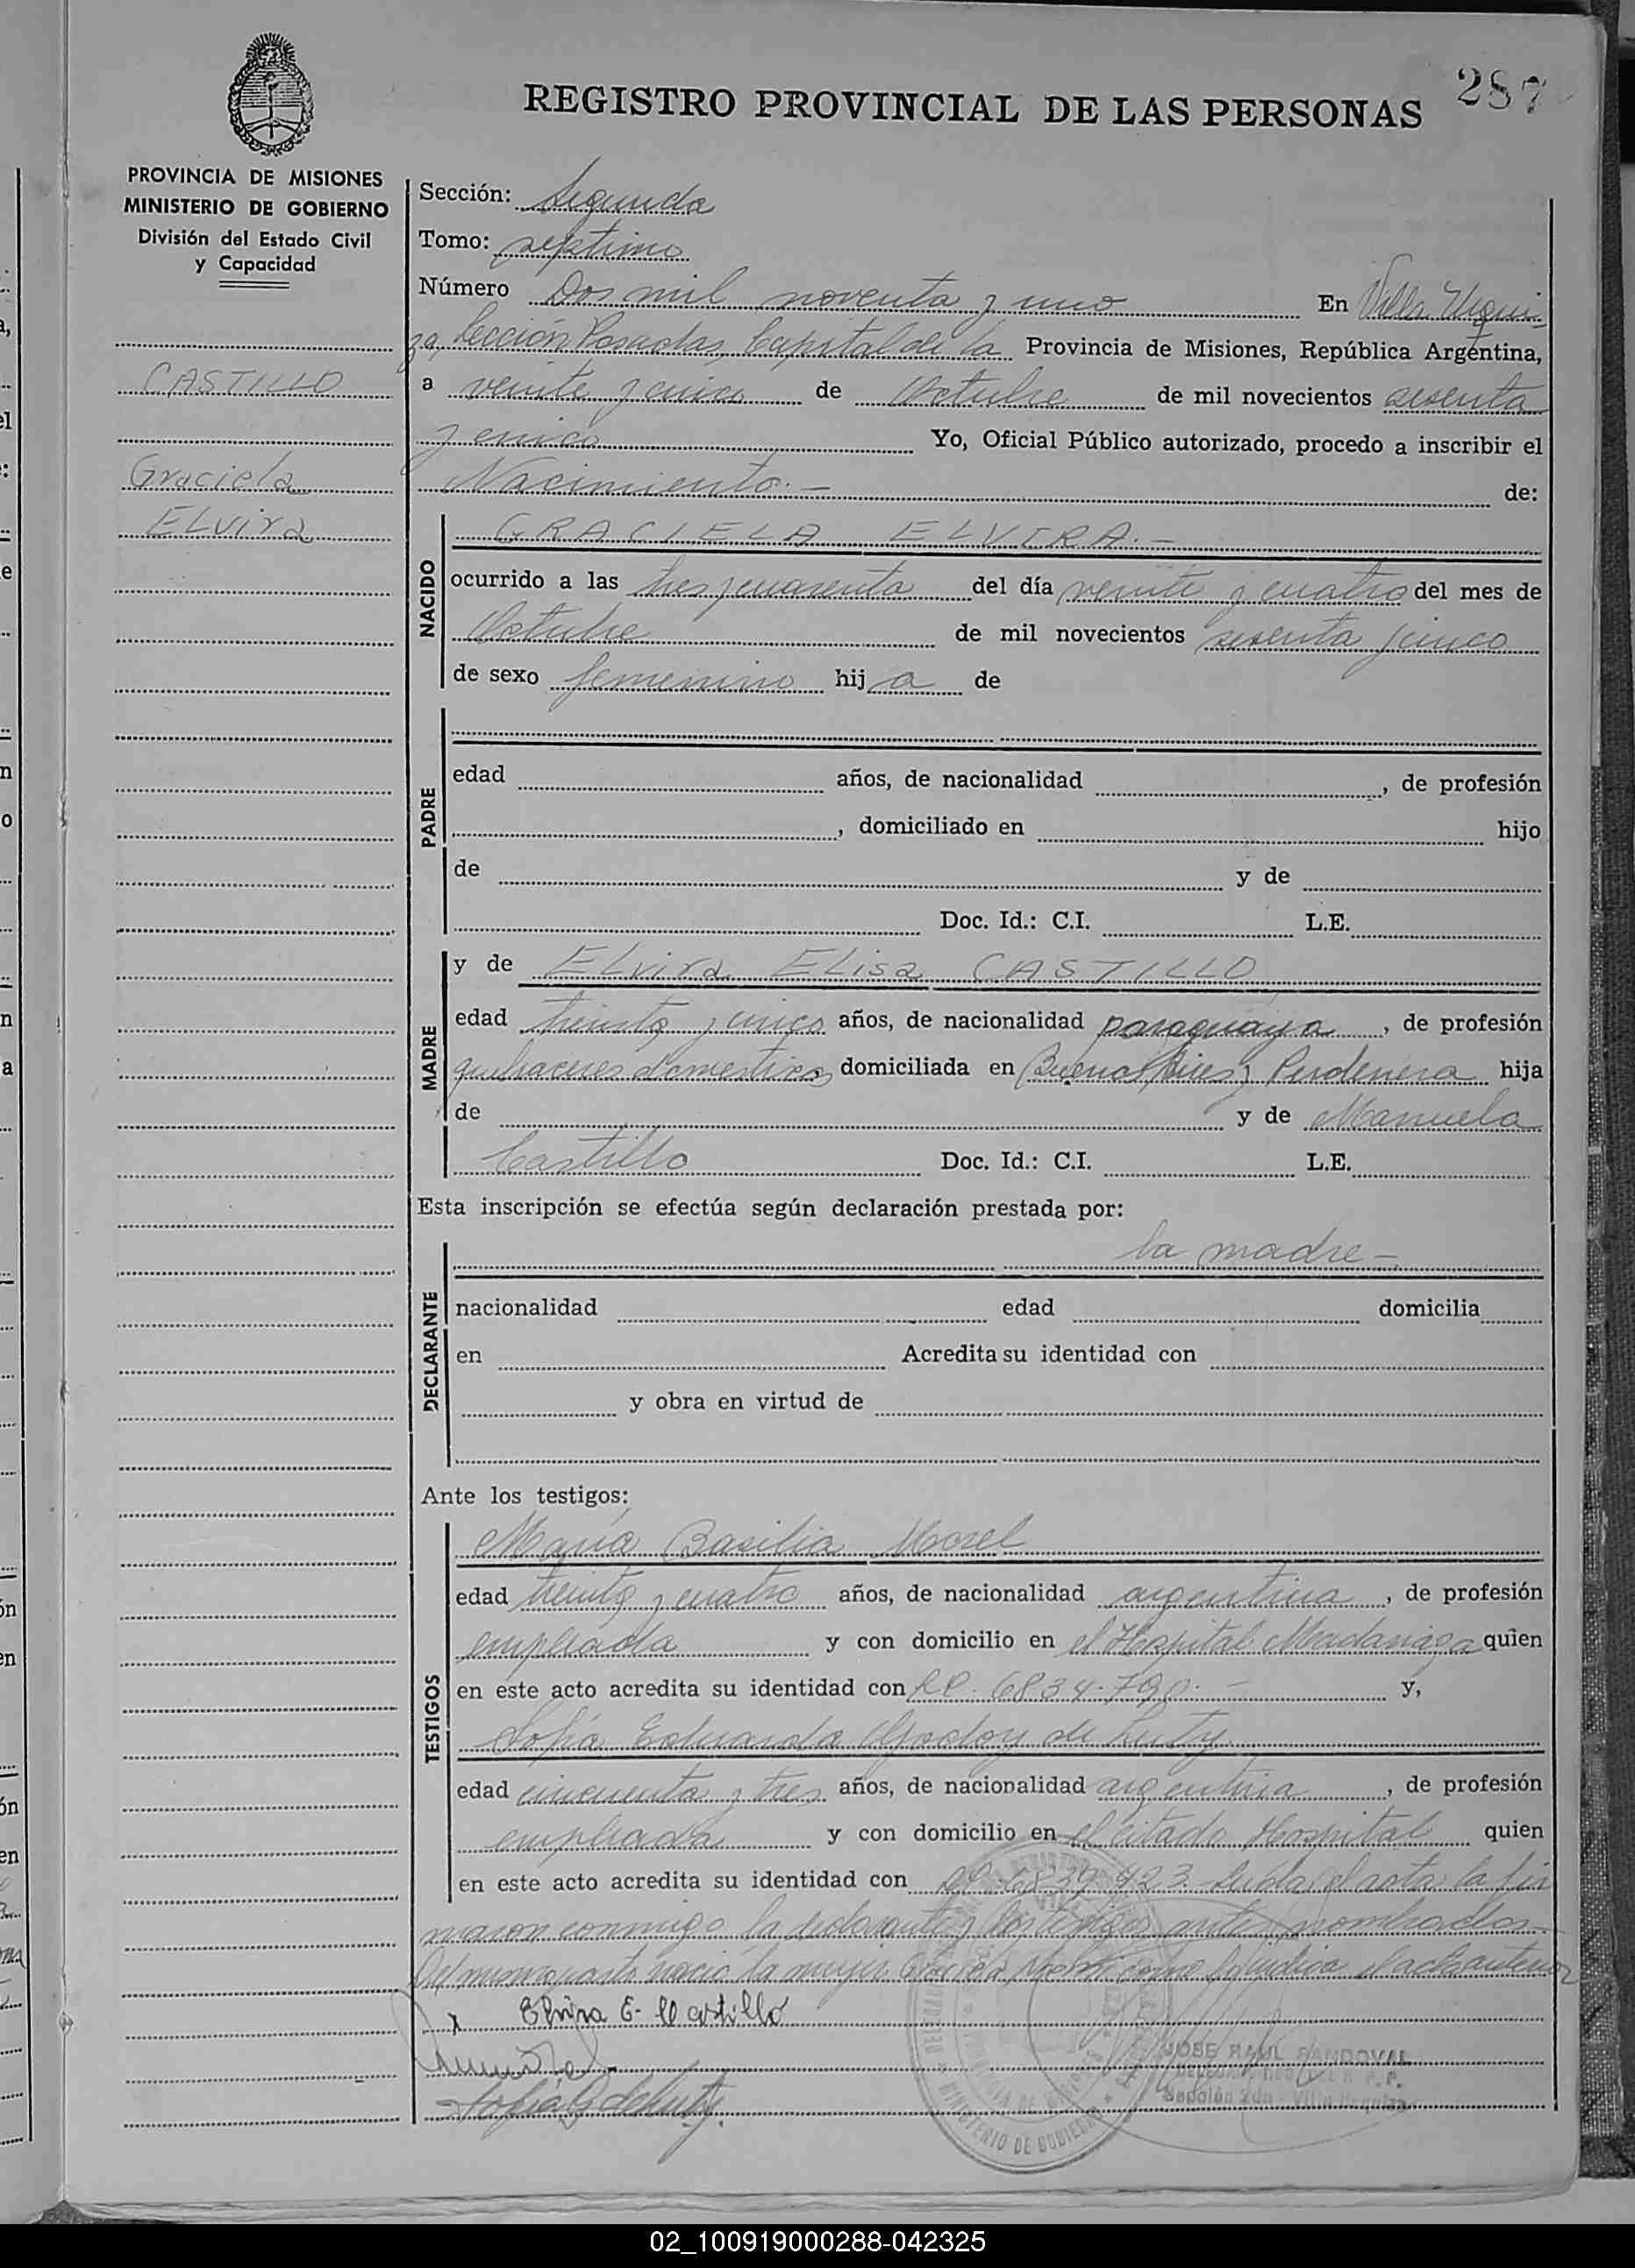 287
REGISTRO PROVINCIAL DE LAS PERSONAS
PROVINCIA DE MISIONES
MINISTERIO DE GOBIERNO
División del Estado Civil
y Capacidad
CASTILLO
Graciela
ELvira
Sección: Segunda
Tomo: septimo
Número Dos mil noventa y uno En Villa Urqui-
za, Sección Posadas, Capital de la Provincia de Misiones, República Argentina,
a veinte y cinco de Octubre de mil novecientos sesenta
y cinco Yo, Oficial Público autorizado, procedo a inscribir el
Nacimiento.- de:
NACIDO
GRACIELA ELVIRA.-
ocurrido a las tres y cuarenta del día veinte y cuatro del mes de
Octubre de mil novecientos sesenta y cinco
de sexo femenino hija de
PADRE
edad años, de nacionalidad , de profesión
, domiciliado en hijo
de y de
Doc. Id.: C.I. L.E.
MADRE
y de ELvira ELisa CASTILLO
edad treinta y cinco años, de nacionalidad paraguaya, de profesión
quehaceres domesticos domiciliada en Buenos Aires y Perdenera hija
de y de Manuela
Castillo Doc. Id.: C.I. L.E.
Esta inscripción se efectúa según declaración prestada por:
la madre-
DECLARANTE
nacionalidad edad domicilia
en Acredita su identidad con
y obra en virtud de
Ante los testigos:
TESTIGOS
María Basilia Morel
edad treinta y cuatro años, de nacionalidad argentina, de profesión
empleada y con domicilio en el Hospital Madariaga quien
en este acto acredita su identidad con 6834.790.- y,
Sofía Eduarda Godoy de
edad cincuenta y tres años, de nacionalidad argentina, de profesión
empleada y con domicilio en el citado Hospital quien
en este acto acredita su identidad con 6839.923 Leída el acta la fir
maron conmigo la declarante y los testigos ante nombrados.-
nació la mujer
Elvira E. Castillo
JOSE RAUL SANDOVAL
Sección 2da - Villa Urquiza
MINISTERIO DE GOBIERNO
02_100919000288-042325